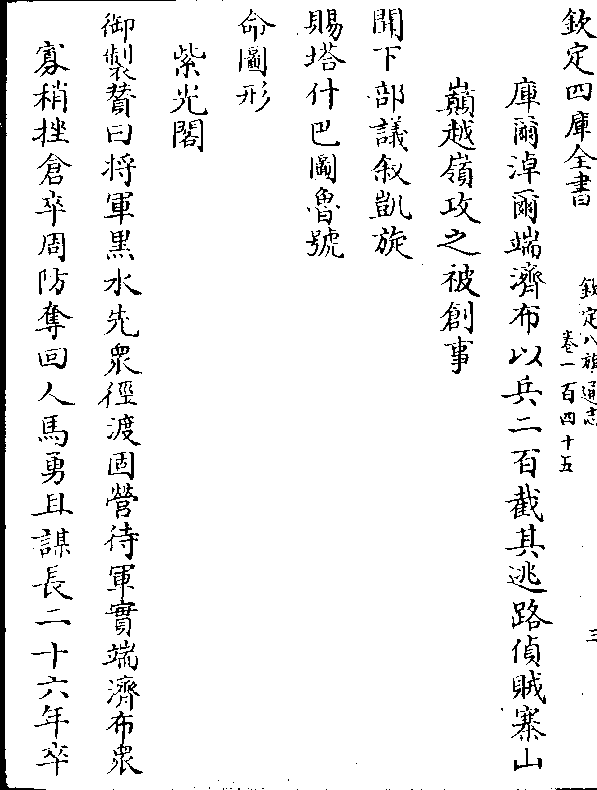 欽定四庫全書
欽定八旗通志
卷一百四十五
三
庫爾淖爾端濟布以兵二百截其逃路偵賊寨山
巔越嶺攻之被創事
聞下部議敘凱旋
賜塔什巴圖魯號
命圖形
紫光閣
御製贊曰將軍黑水先衆徑渡固營待軍實端濟布衆
寡稍挫倉卒周防奪回人馬勇且謀長二十六年卒